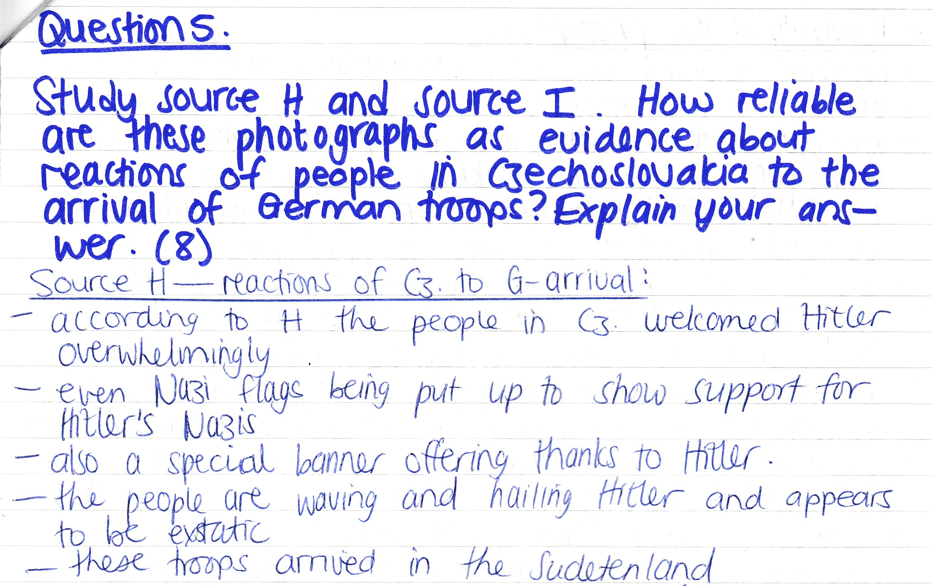 Question 5.
Study source H and source I. How reliable
are these photographs as evidence about
reactions of people in Czechoslovakia to the
arrival of German troops? Explain your ans-
wer. (8)
Source H — reactions of Cz. to G-arrival:
- according to H the people in Cz. welcomed Hitler
overwhelmingly.
- even Nazi flags being put up to show support for
Hitler's Nazis
- also a special banner offering thanks to Hitler.
- the people are waving and hailing Hitler and appears
to be extatic
- these troops arrived in the Sudetenland